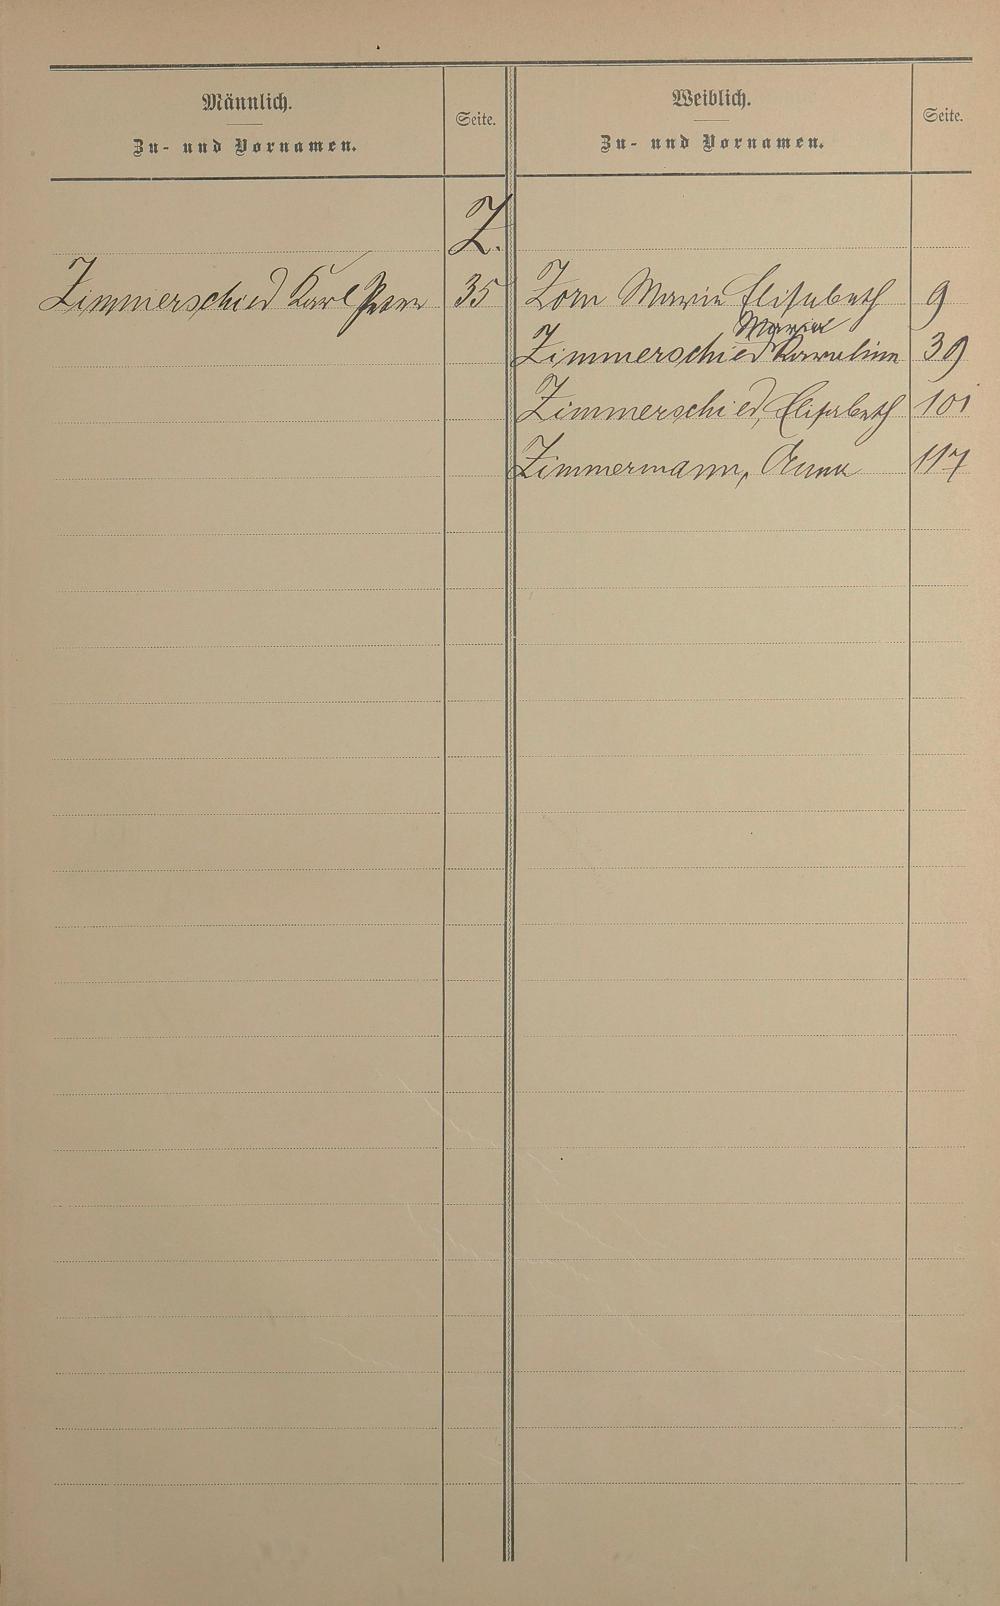 Männlich.
Zu- und Vornamen.
Seite.
Weiblich.
Zu- und Vornamen.
Seite.
Z.
Zimmerschied Karl 35
Zorn Maria Elisabeth 9
Maria
Zimmerschied Karoline 39
Zimmerschied, Elisabeth 101
Zimmermann, Anna 117